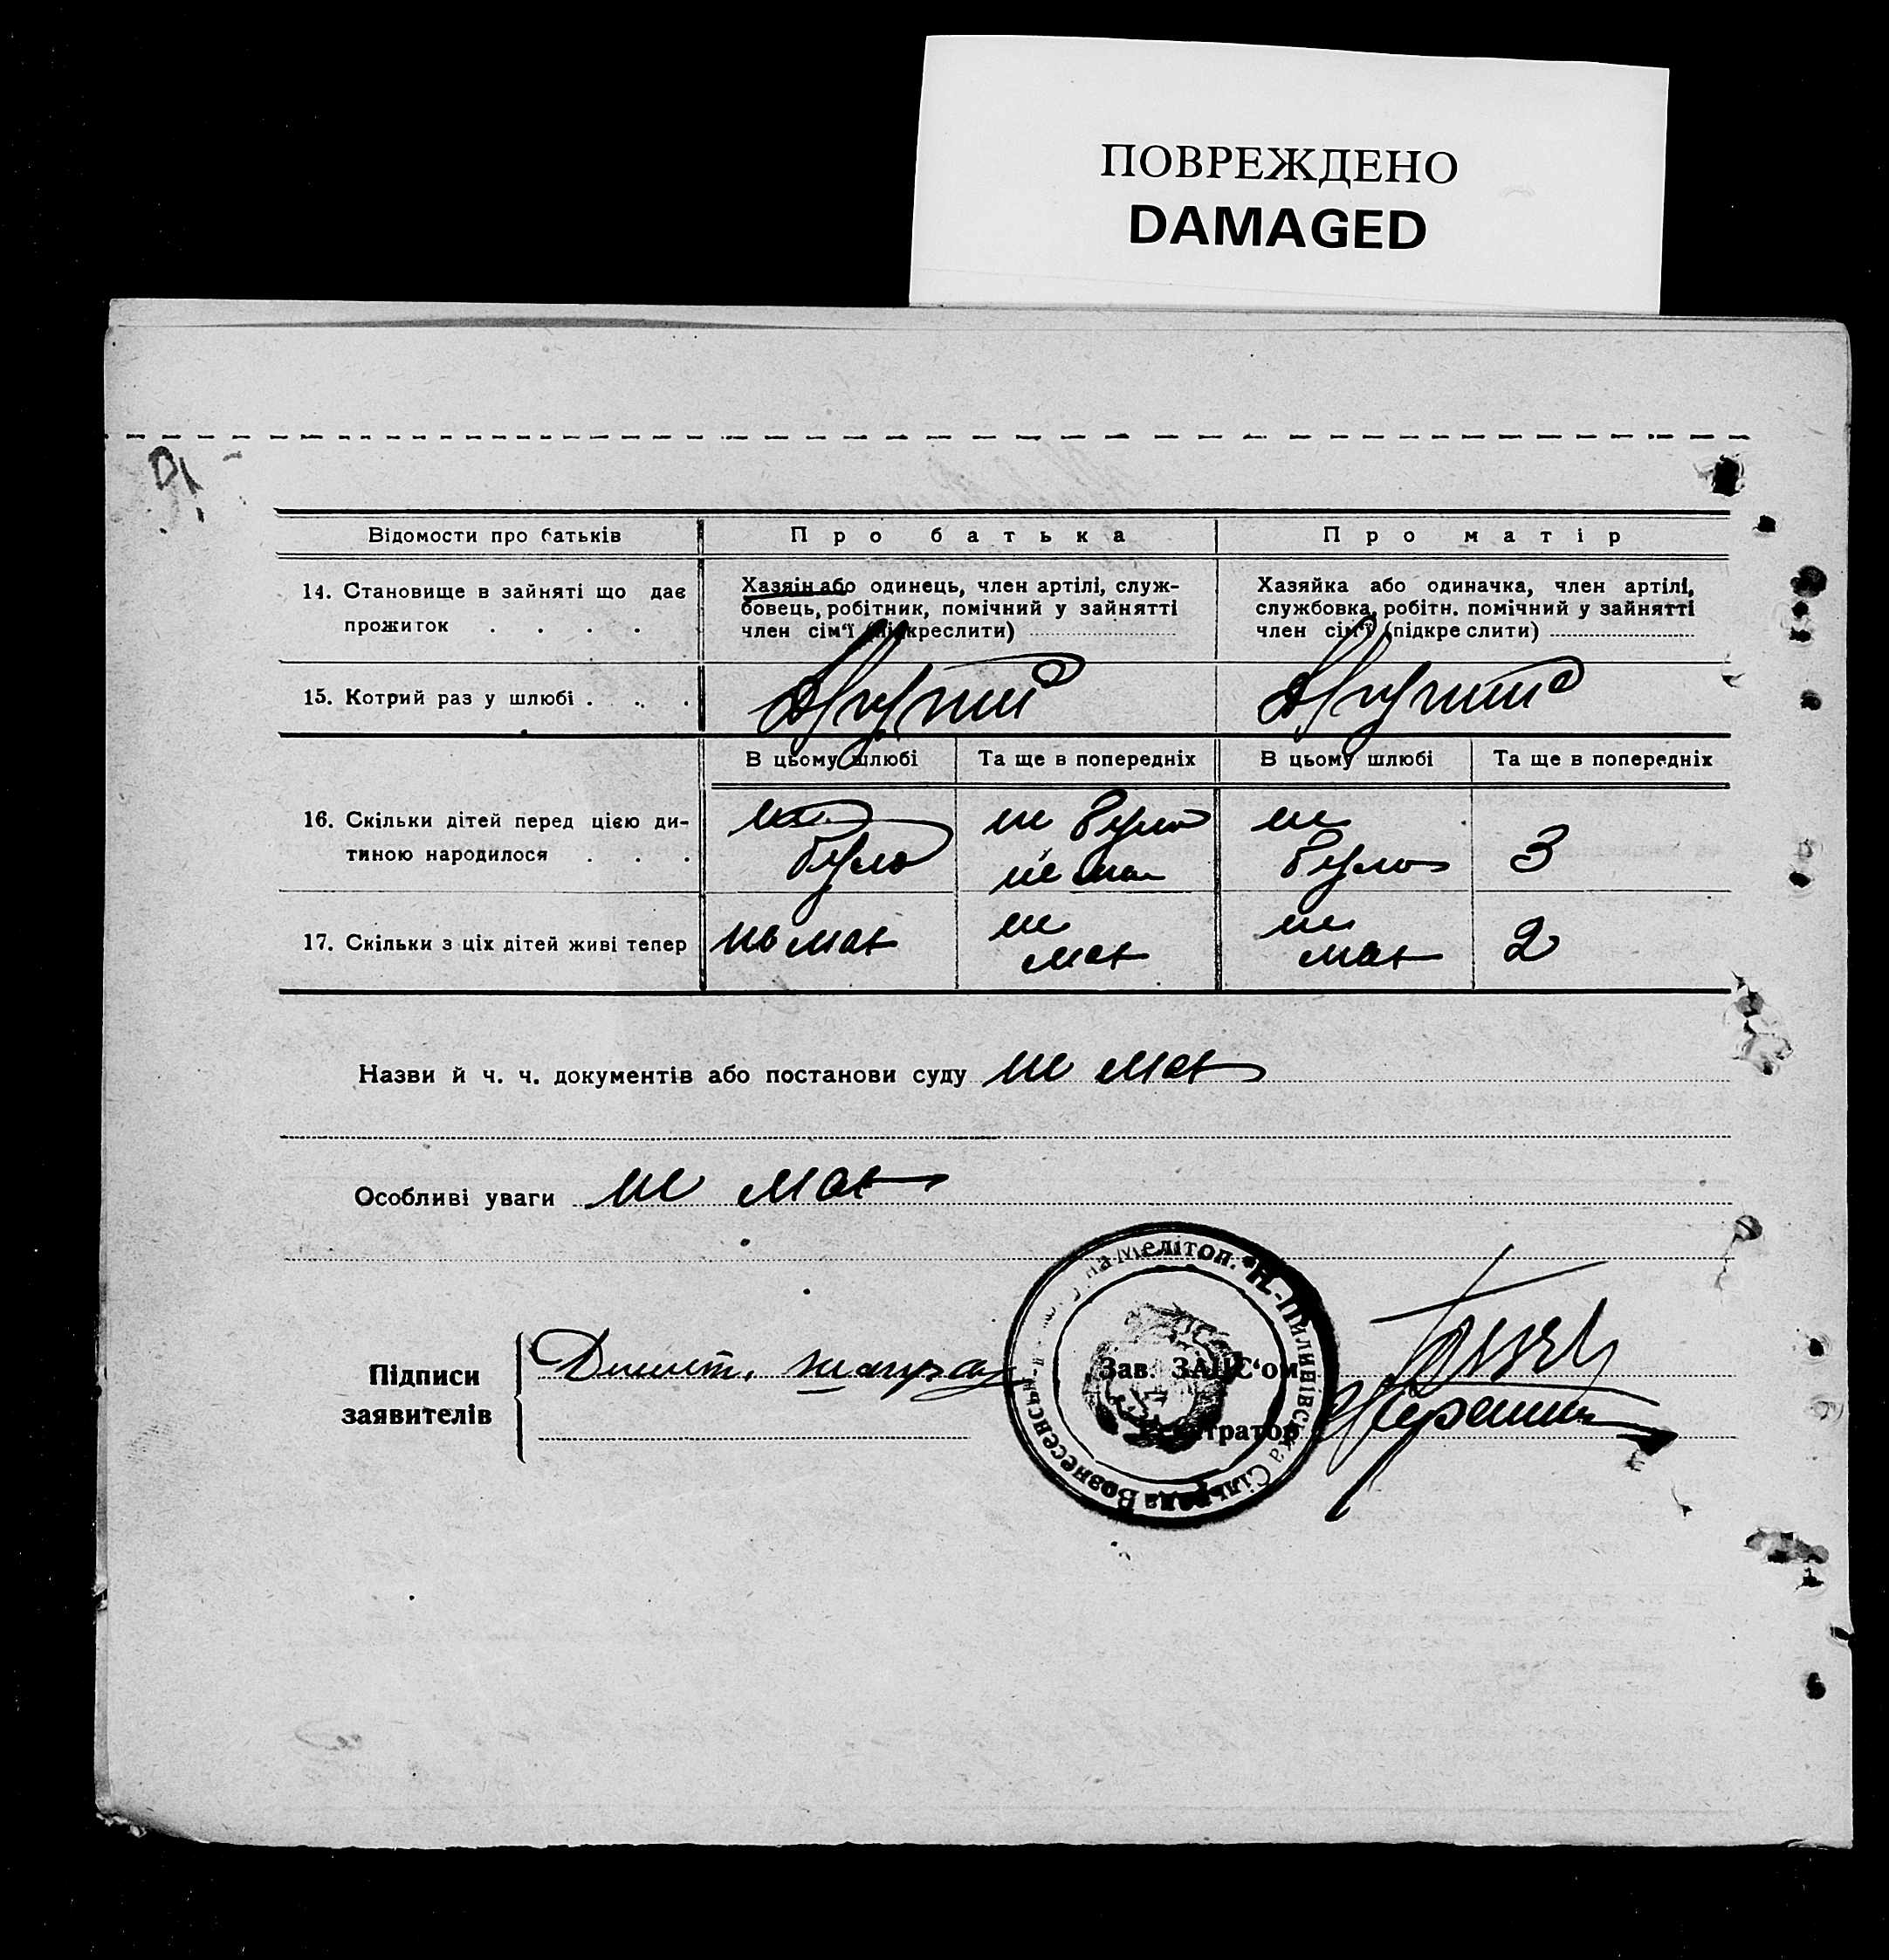 ПОВРЕЖДЕНО
DAMAGED
Відомости про батьків
Про батька
Про матір
14. Становище в зайняті що дає
прожиток . . . .
Хазяін або одинець, член артілі, служ-
бовець, робітник, помічний у зайнятті
член сім‘ї (підкреслити)
Хазяйка або одиначка, член артілі,
службовка, робітн. помічний у зайнятті
член сім‘ї (підкреслити)
15. Котрий раз у шлюбі . . . .
Другий
Другий
В цьому шлюбі
Та ще в попередніх
В цьому шлюбі
Та ще в попередніх
16. Скільки дітей перед цією ди-
тиною народилося . . .
не
було
не було
не має
не
було
3
17. Скільки з ціх дітей живі тепер
не має
не
має
не
має
2
Назви й ч. ч. документів або постанови суду не має
Особливі уваги не має
Підписи
заявителів
Зав. ЗАЦС‘ом
Регістратор
Мелітоп. * Н.-Пилипівська Сільрада Вознесенськ